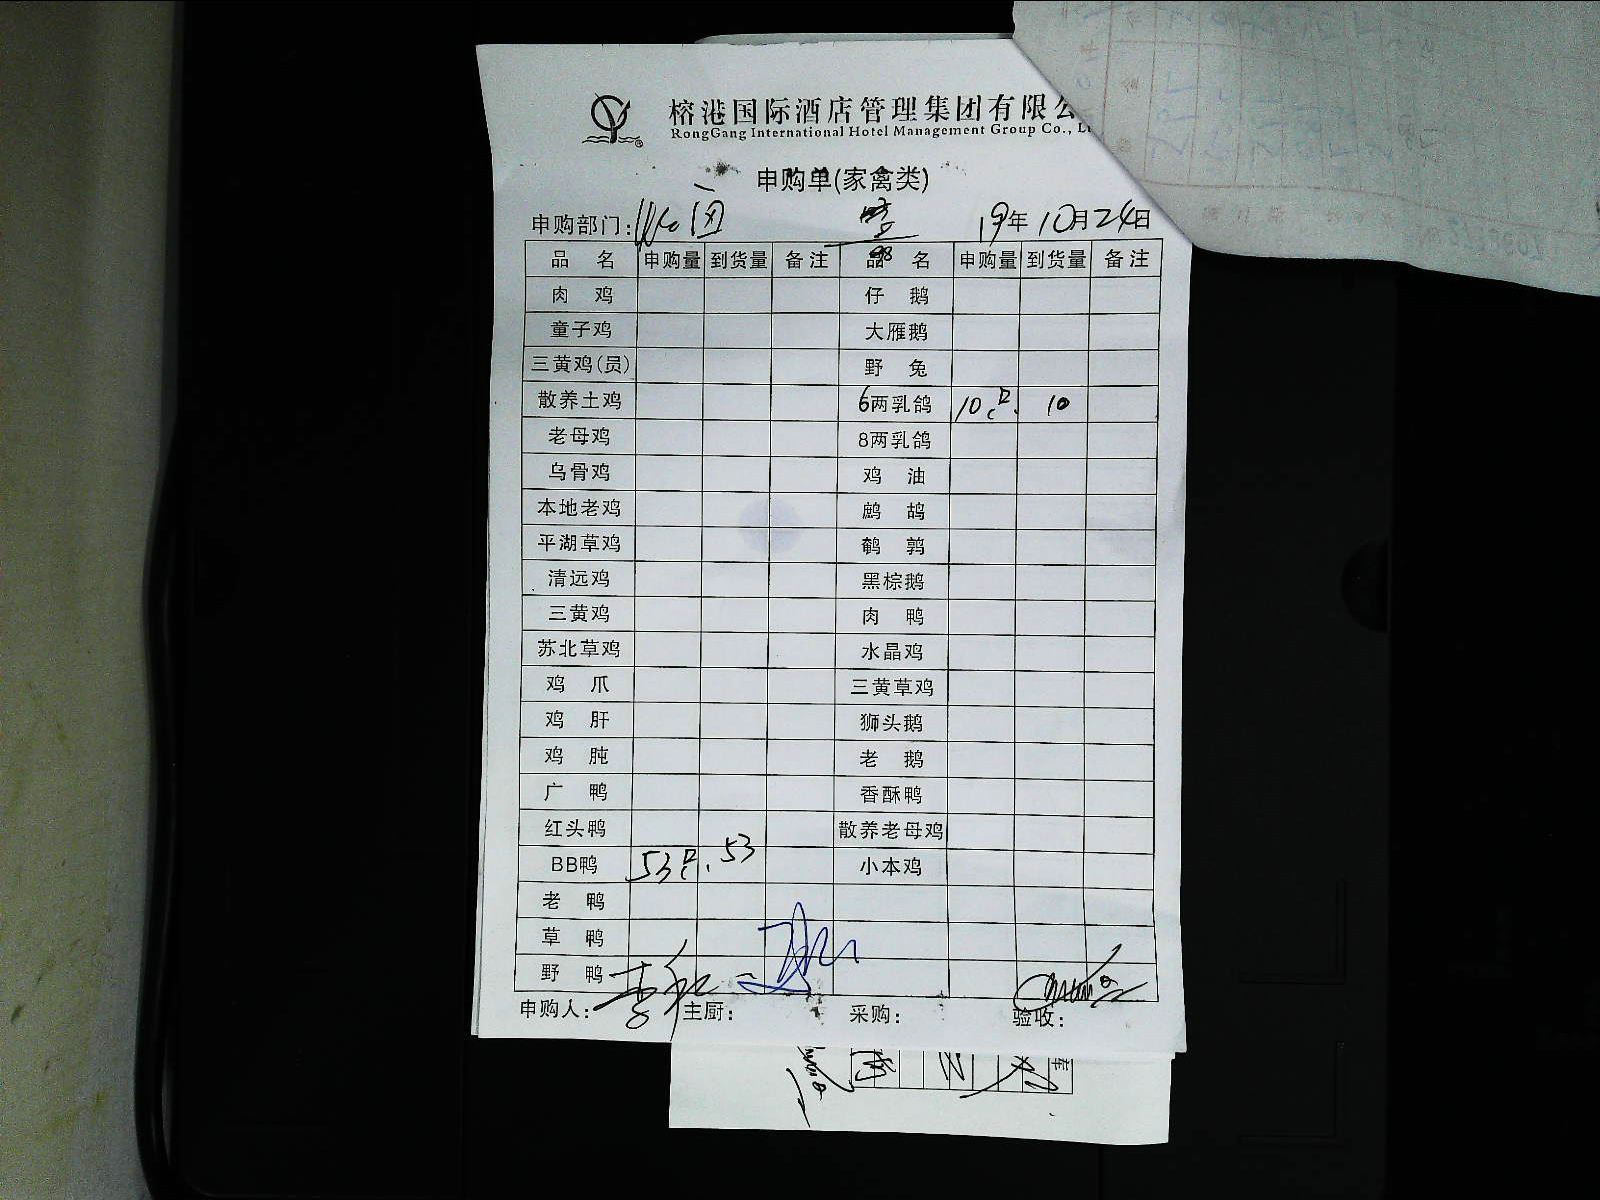 榕港国际酒店管理集团有限公
RongGang International Hotel Management Group Co., L
申购单(家禽类)
申购部门: 19年10月24日
品名 申购量 到货量 备注 品名 申购量 到货量 备注
肉鸡 仔鹅
童子鸡 大雁鹅
三黄鸡(员) 野兔
散养土鸡 6两乳鸽 10只. 10
老母鸡 8两乳鸽
乌骨鸡 鸡油
本地老鸡 鹧鸪
平湖草鸡 鹌鹑
清远鸡 黑棕鹅
三黄鸡 肉鸭
苏北草鸡 水晶鸡
鸡爪 三黄草鸡
鸡肝 狮头鹅
鸡肫 老鹅
广鸭 香酥鸭
红头鸭 散养老母鸡
BB鸭 53只. 53 小本鸡
老鸭
草鸭
野鸭
申购人: 主厨: 采购: 验收: